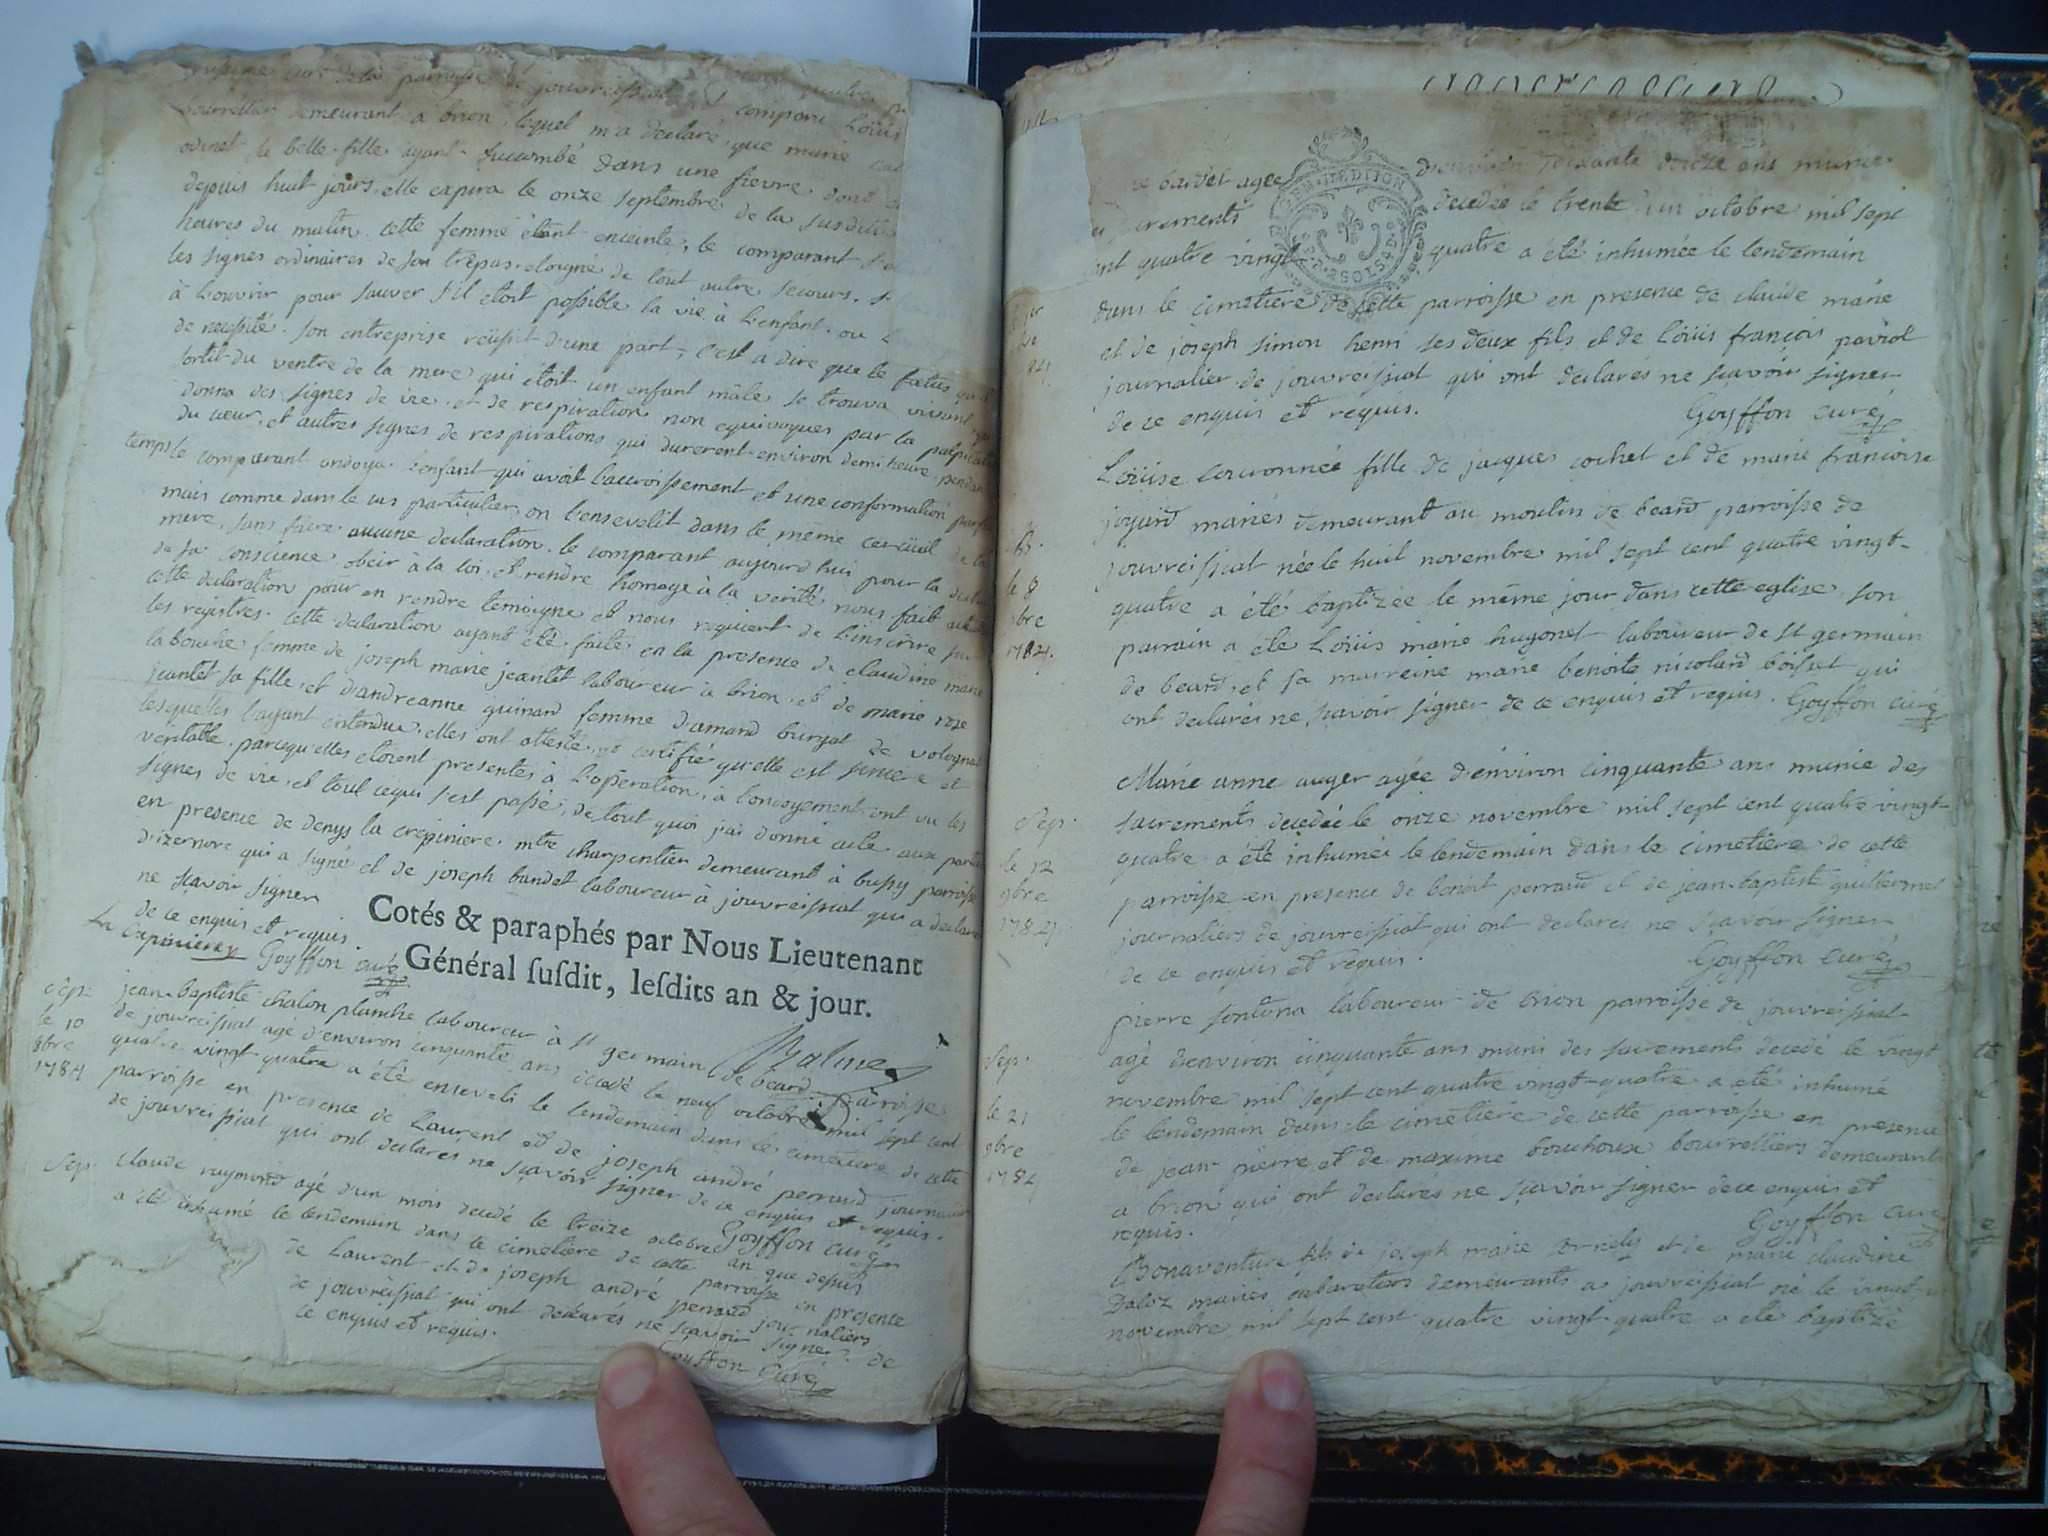 de la parroisse de jouvreissiat quatre
bourrelier demeurant a brion, lequel m'a declaré, que marie
sa belle-fille ayant sucombé dans une fievre dont
depuis huit jours, elle expira le onze septembre de la susdite
heures du matin. cette femme étant enceinte, le comparant
les signes ordinaires de son trépas, eloigné de tout autre secours,
à l'ouvrir pour sauver s'il etoit possible la vie à l'enfant, ou
de necessité. son entreprise reüssit d'une part, c'est a dire que le fœtus qui
sortit du ventre de la mere qui étoit un enfant mâle se trouva vivant
donna des signes de vie et de respiration non equivoques par la palpitation
du cœur, et autres signes de respirations qui durerent environ demi heure, pendant
temps le comparant ondoya l'enfant qui avoit l'accroissement et une conformation
mais comme dans le cas particulier, on l'ensevelit dans le même cerceüil de la
mere, sans faire aucune declaration. le comparant aujourd'hui pour la
de sa conscience, obeir à la loi, et rendre homage à la verité nous fait
cette declaration pour en rendre temoigne et nous requiert de l'inscrire sur
les registres. cette declaration ayant été faite en la presence de claudine marie
labouche femme de joseph marie jeantet laboureur à brion, et de marie rose
jeantet sa fille, et d'andreanne guinard femme d'amand burgat de volognat
lesquelles l'ayant entendue, elles ont attesté et certifié qu'elle est sincere et
veritable, parcequ'elles etoient presentes à l'operation, à l'ondoyement, ont vu les
signes de vie, et tout ce qui s'est passé, de tout quoi j'ai donné acte aux parties
en presence de denys la crepiniere, mtre charpentier demeurant à bussy parroisse
d'izernore qui a signé et de joseph bandet laboureur à jouvreissiat qui a declaré
ne sçavoir signer
de ce enquis et requis
La Crepiniere Goyffon curé
Cotés & paraphés par Nous Lieutenant
Général susdit, lesdits an & jour.
Balme
Sep.
le 10
8bre
1784
jean-baptiste chalon planche laboureur à st germain de beard parroisse
de jouvreissiat agé d'environ cinquante ans decedé le neuf octobre mil sept cent
quatre vingt quatre a été enseveli le lendemain dans le cimetiere de cette
parroisse en presence de Laurent et de joseph andré perraud journaliers
de jouvreissiat qui ont declarés ne sçavoir signer de ce enquis et requis.
Goyffon curé
Sep.
claude raymond agé d'un mois decedé le treize octobre an que dessus
a été inhumé le lendemain dans le cimetiere de cette parroisse en presence
de Laurent et de joseph andré perraud journaliers
de jouvreissiat qui ont declarés ne sçavoir signer de
ce enquis et requis.
Goyffon curé
agée d'environ soixante douze ans munie
decedée le trente un octobre mil sept
cent quatre vingt quatre a été inhumée le lendemain
dans le cimetiere de cette parroisse en presence de claude marie
et de joseph simon henri ses deux fils et de Loüis françois paviot
journalier de jouvreissiat qui ont declarés ne sçavoir signer
de ce enquis et requis.
Goyffon curé
le 8
9bre
1784.
Loüise couronnée fille de jacques cochet et de marie francoise
joyard mariés demeurant au moulin de beard parroisse de
jouvreissiat née le huit novembre mil sept cent quatre vingt-
quatre a été baptizée le même jour dans cette eglise, son
parrain a été Loüis marie hugonet laboureur de st germain
de beard, et sa marreine marie benoite nicolard boisset qui
ont declarés ne sçavoir signer de ce enquis et requis. Goyffon curé
Sep.
le 12
9bre
1784
Marie anne auger agée d'environ cinquante ans munie des
sacrements decedée le onze novembre mil sept cent quatre vingt-
quatre a été inhumée le lendemain dans le cimetiere de cette
parroisse en presence de benoit perraud et de jean-baptiste guillermet
journaliers de jouvreissiat qui ont declarés ne sçavoir signer
de ce enquis et requis.
Goyffon curé
Sep.
le 21
9bre
1784
pierre fontana laboureur de brion parroisse de jouvreissiat
agé d'environ cinquante ans muni des sacrements decedé le vingt
novembre mil sept cent quatre vingt-quatre a été inhumé
le lendemain dans le cimetiere de cette parroisse en presence
de jean pierre et de maxime bouchoux bourreliers demeurants
a brion qui ont declarés ne sçavoir signer de ce enquis et
requis.
Goyffon curé
Bonaventure fils de joseph marie et de marie claudine
Daloz mariés cabaretiers demeurants a jouvreissiat né le vingt
novembre mil sept cent quatre vingt-quatre a été baptizé